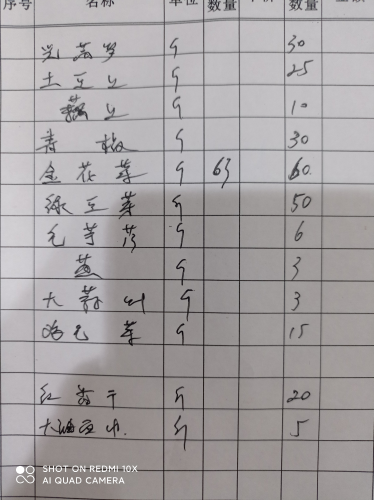 序号 名称 单位 数量 单价 数量 金额
光芦笋 斤 30
土豆 斤 25
藕 斤 10
青椒 斤 30
金花芽 斤 63 60
绿豆芽 斤 50
毛芋 斤 6
葱 斤 3
大蒜叶 斤 3
斤 15
红香干 斤 20
大油豆巾 斤 5
SHOT ON REDMI 10X
AI QUAD CAMERA